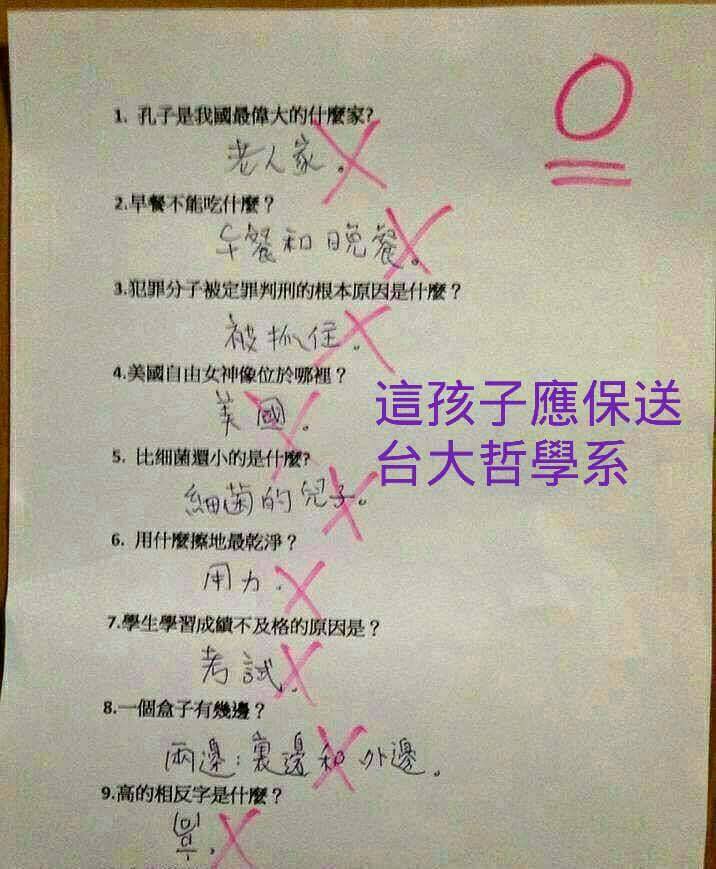 0
1. 孔子是我國最偉大的什麼家?
老人家。
2.早餐不能吃什麼？
午餐和晚餐。
3.犯罪分子被定罪判刑的根本原因是什麼？
被抓住。
4.美國自由女神像位於哪裡？
美國。
這孩子應保送
台大哲學系
5. 比細菌還小的是什麼?
細菌的兒子。
6. 用什麼擦地最乾淨？
用力.
7.學生學習成績不及格的原因是？
考試.
8.一個盒子有幾邊？
兩邊:裏邊和外邊。
9.高的相反字是什麼？